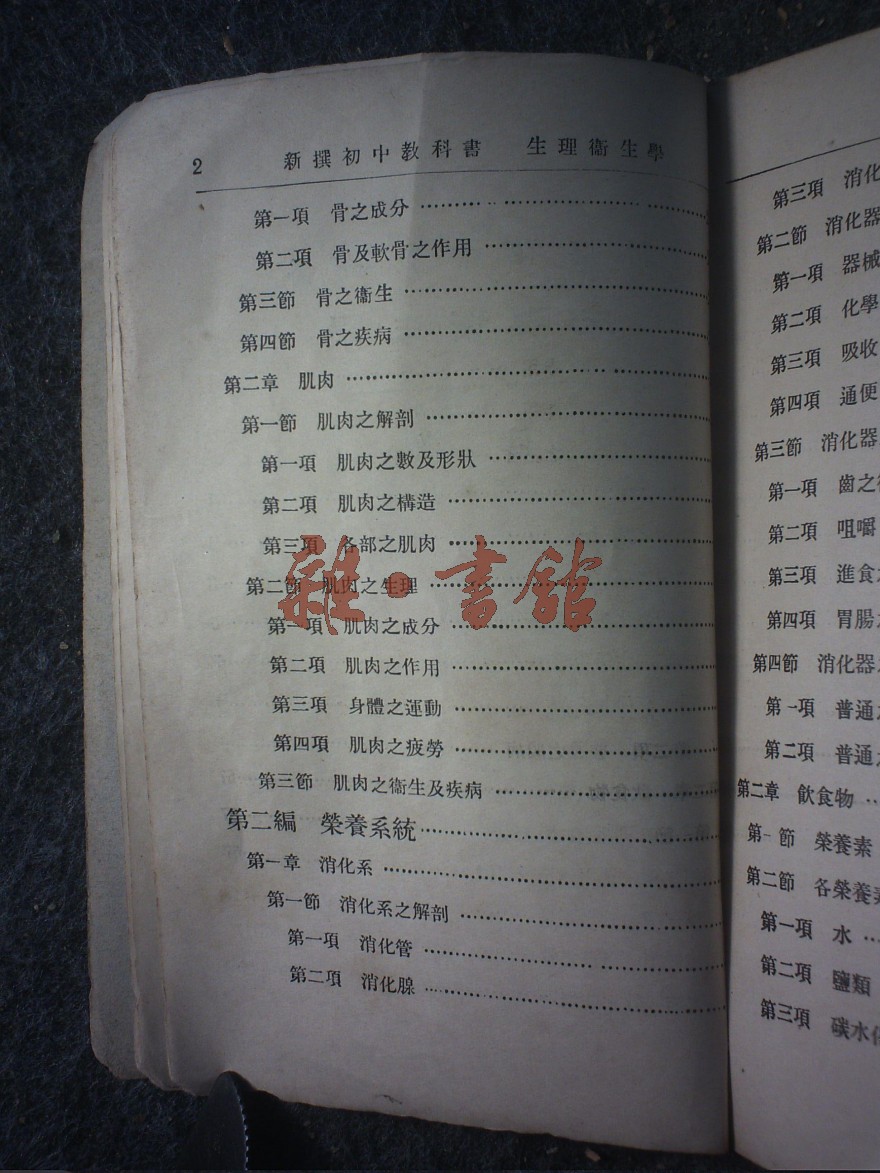 2 新撰初中教科書 生理衞生學
第一項 骨之成分
第二項 骨及軟骨之作用
第三節 骨之衞生
第四節 骨之疾病
第二章 肌肉
第一節 肌肉之解剖
第一項 肌肉之數及形狀
第二項 肌肉之構造
第三項 各部之肌肉
第二節 肌肉之生理
第一項 肌肉之成分
第二項 肌肉之作用
第三項 身體之運動
第四項 肌肉之疲勞
第三節 肌肉之衞生及疾病
第二編 榮養系統
第一章 消化系
第一節 消化系之解剖
第一項 消化管
第二項 消化腺
雜·書館
第三項 消化
第二節 消化器
第一項 器械
第二項 化學
第三項 吸收
第四項 通便
第三節 消化器
第一項 齒之
第二項 咀嚼
第三項 進食
第四項 胃腸
第四節 消化器
第一項 普通
第二項 普通
第二章 飲食物
第一節 榮養素
第二節 各榮養素
第一項 水
第二項 鹽類
第三項 碳水化